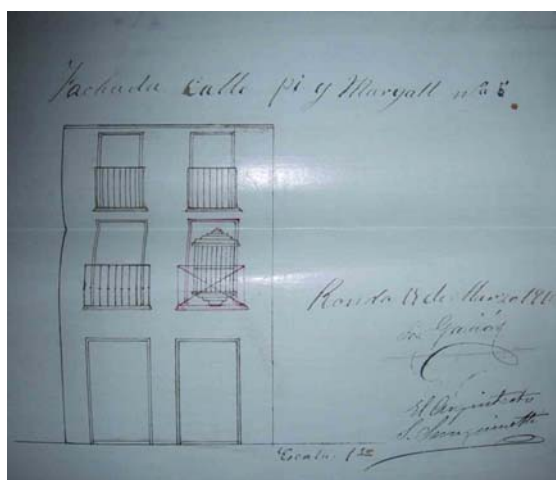 Fachada calle pi y Margall nº 5
Ronda 13 de Marzo 191
El Arquitecto
S. Sanguinetti
Escala. 1